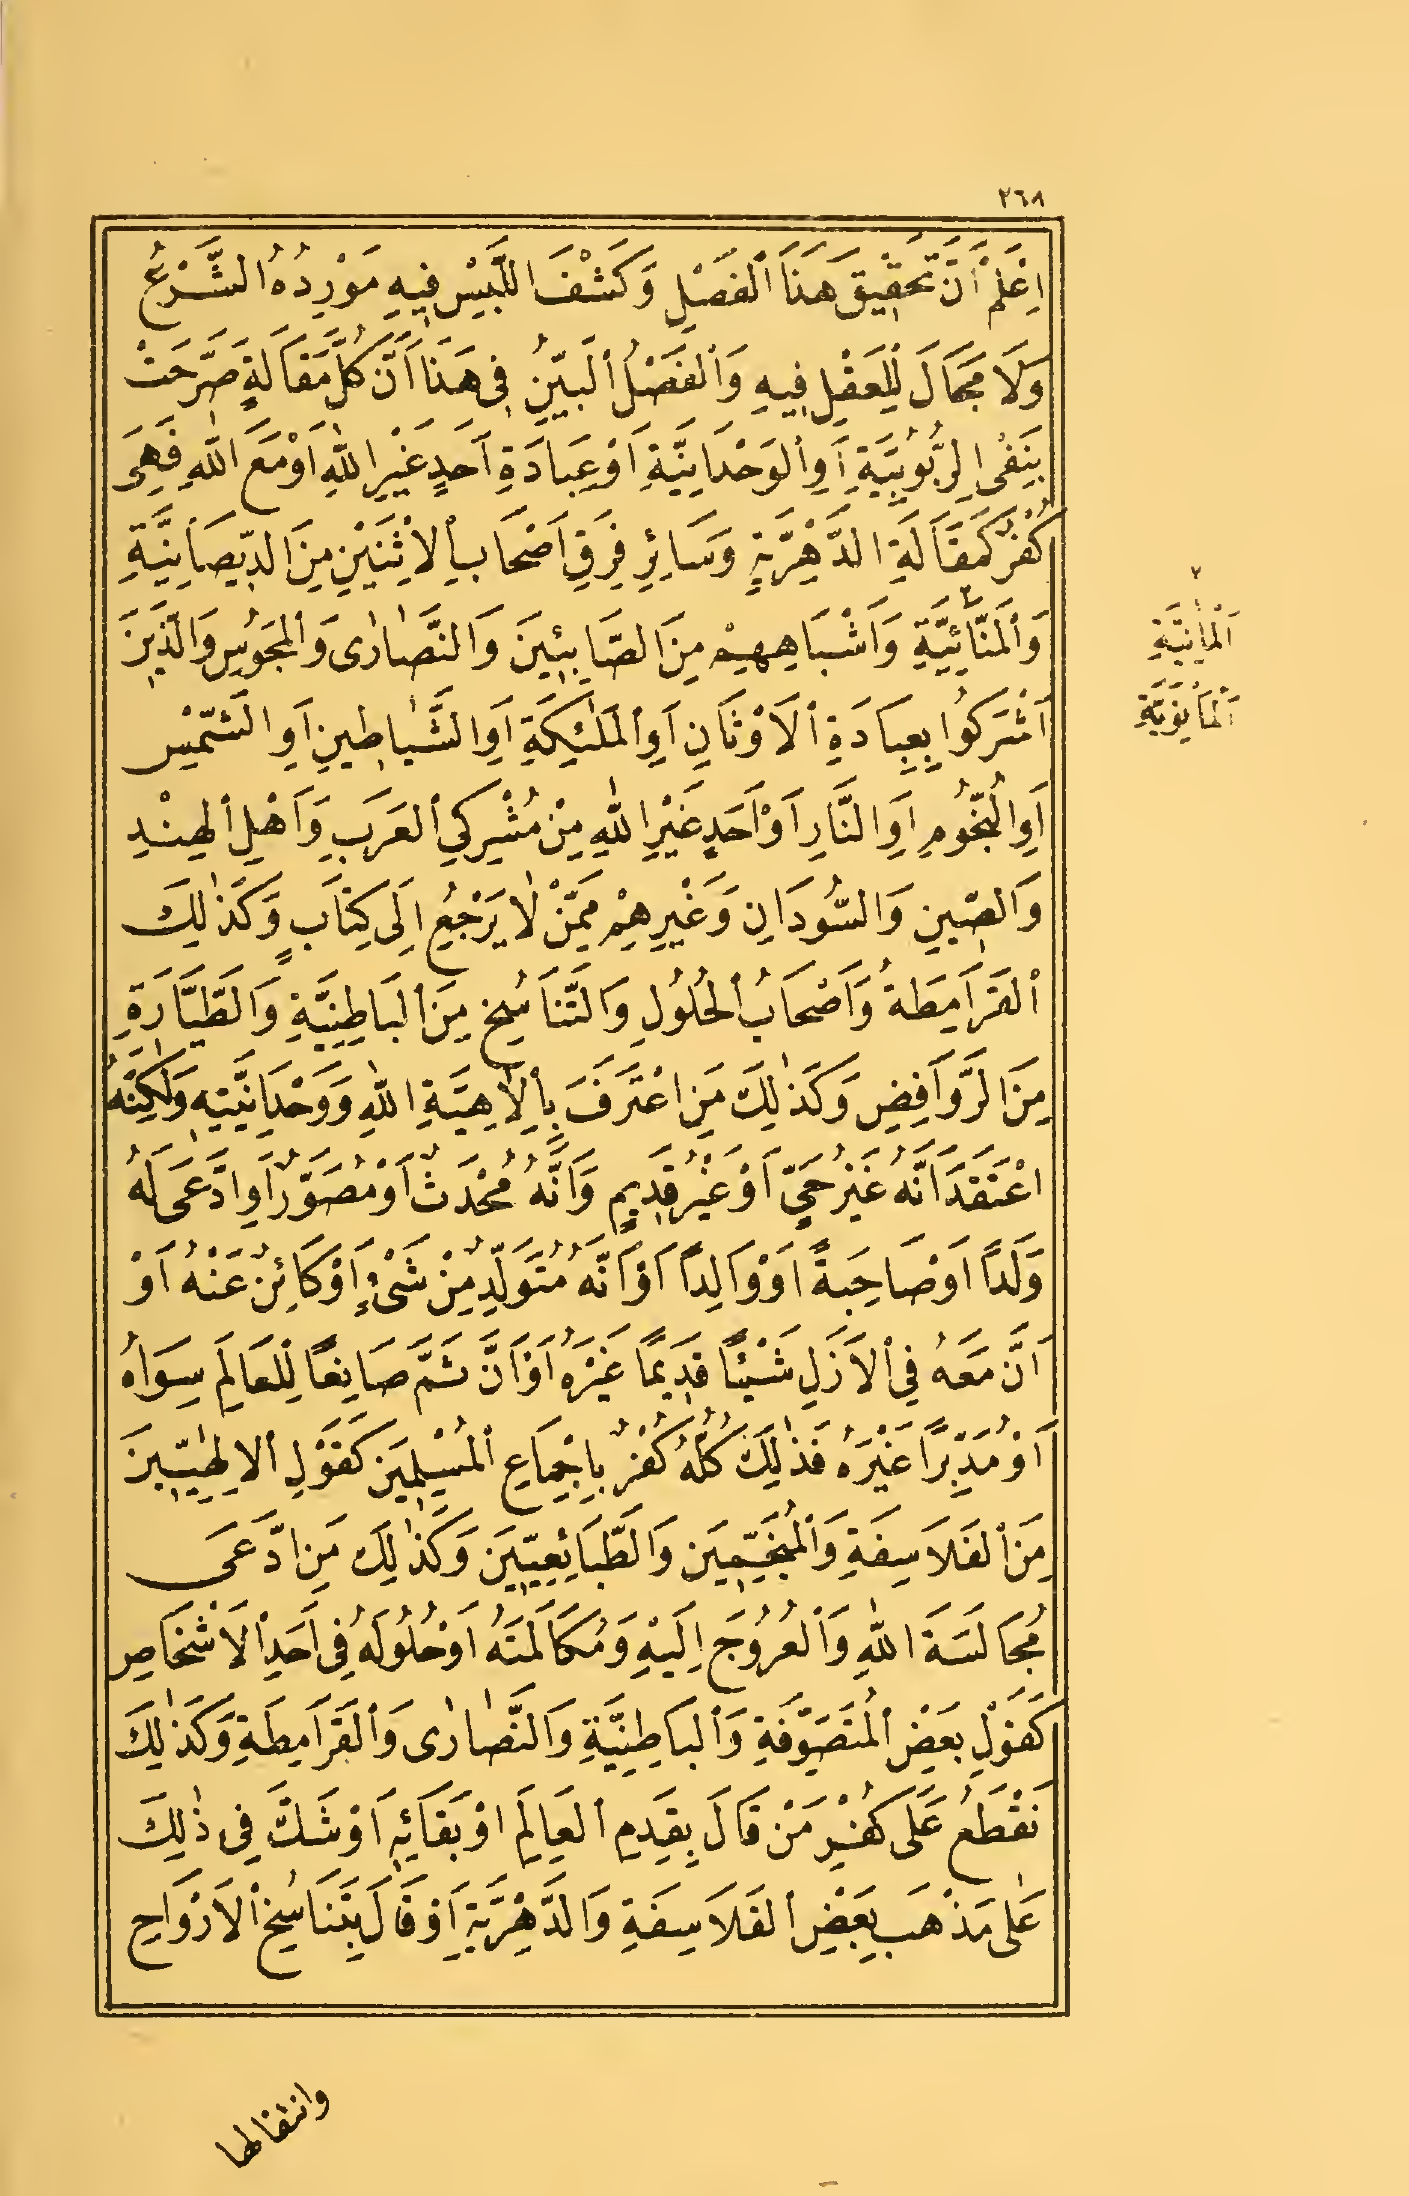 ٢٦٨
اِعْلَمْ اَنَّ تَحْقِيقَ هَذَا اَلْفَصْلِ وَكَشْفَ اللَّبْسِ فِيهِ مَوْرِدُهُ الشَّرْعُ
وَلَا مَجَالَ لِلْعَقْلِ فِيهِ وَاَلْفَصْلُ اَلْبَيِّنُ فِى هَذَا اَنَّ كُلَّ مَقَالَةٍ صَرَّحَتْ
بِنَفْىِ الرُّبُوبِيَّةِ اَوِ اَلْوَحْدَانِيَّةِ اَوْ عِبَادَةِ اَحَدٍ غَيْرِ اللهِ اَوْ مَعَ اللهِ فَهِىَ
كُفْرٌ كَمَقَالَةِ الدَّهْرِيَّةِ وَسَائِرِ فِرَقِ اَصْحَابِ اَلْاِثْنَيْنِ مِنَ الدِّيصَانِيَّةِ
وَاَلْمَنَّائِيَّةِ ٢ وَاَشْبَاهِهِمْ مِنَ الصَّابِئِينَ وَالنَّصٰارٰى وَاَلْمَجُوسِ وَالَّذِينَ
اَشْرَكُوا بِعِبَادَةِ اَلْاَوْثَانِ اَوِ اَلْمَلٰئِكَةِ اَوِ الشَّيٰاطِينِ اَوِ الشَّمْسِ
اَوِ النُّجُومِ اَوِ النَّارِ اَوْ اَحَدٍ غَيْرِ اللهِ مِنْ مُشْرِكِي اَلْعَرَبِ وَاَهْلِ اَلْهِنْدِ
وَالصِّينِ وَالسُّودَانِ وَغَيْرِهِمْ مِمَّنْ لٰا يَرْجِعُ اِلَى كِتَابٍ وَكَذٰلِكَ
اَلْقَرَامِطَةُ وَاَصْحَابُ اَلْحُلُولِ وَالتَّنَاسُخِ مِنَ اَلْبَاطِنِيَّةِ وَالطَّيَّارَةِ
مِنَ الرَّوَافِضِ وَكَذٰلِكَ مَنِ اعْتَرَفَ بِاِلٰاهِيَّةِ اللهِ وَوَحْدَانِيَّتِهِ وَلٰكِنَّهُ
اعْتَقَدَ اَنَّهُ غَيْرُ حَيٍّ اَوْ غَيْرُ قَدِيمٍ وَاَنَّهُ مُحْدَثٌ اَوْ مُصَوَّرٌ اَوِ ادَّعَى لَهُ
وَلَدًا اَوْ صَاحِبَةً اَوْ وَالِدًا اَوْ اَنَّهُ مُتَوَلِّدٌ مِنْ شَىْءٍ اَوْ كَائِنٌ عَنْهُ اَوْ
اَنَّ مَعَهُ فِي اَلْاَزَلِ شَيْئًا قَدِيمًا غَيْرَهُ اَوْ اَنَّ ثَمَّ صَانِعًا لِلْعَالَمِ سِوَاهُ
اَوْ مُدَبِّرًا غَيْرَهُ فَذٰلِكَ كُلُّهُ كُفْرٌ بِاِجْمَاعِ اَلْمُسْلِمِينَ كَقَوْلِ اَلْاِلٰهِيِّينَ
مِنَ اَلْفَلَاسِفَةِ وَاَلْمُنَجِّمِينَ وَالطَّبَائِعِيِّينَ وَكَذٰلِكَ مَنِ ادَّعَى
مُجَالَسَةَ اللهِ وَاَلْعُرُوجَ اِلَيْهِ وَمُكَالَمَتَهُ اَوْ حُلُولَهُ فِى اَحَدِ اَلْاَشْخَاصِ
كَقَوْلِ بَعْضِ اَلْمُتَصَوِّفَةِ وَاَلْبَاطِنِيَّةِ وَالنَّصٰارٰى وَاَلْقَرَامِطَةِ وَكَذٰلِكَ
نَقْطَعُ عَلَى كُفْرِ مَنْ قَالَ بِقِدَمِ اَلْعَالَمِ اَوْ بَقَائِهِ اَوْ شَكَّ فِى ذٰلِكَ
عَلٰى مَذْهَبِ بَعْضِ اَلْفَلَاسِفَةِ وَالدَّهْرِيَّةِ اَوْ قَالَ بِتَنَاسُخِ اَلْاَرْوَاحِ
وانتقالها
٢
اَلْمٰانِيَّةِ
اَلْمَانَوِيَّةِ